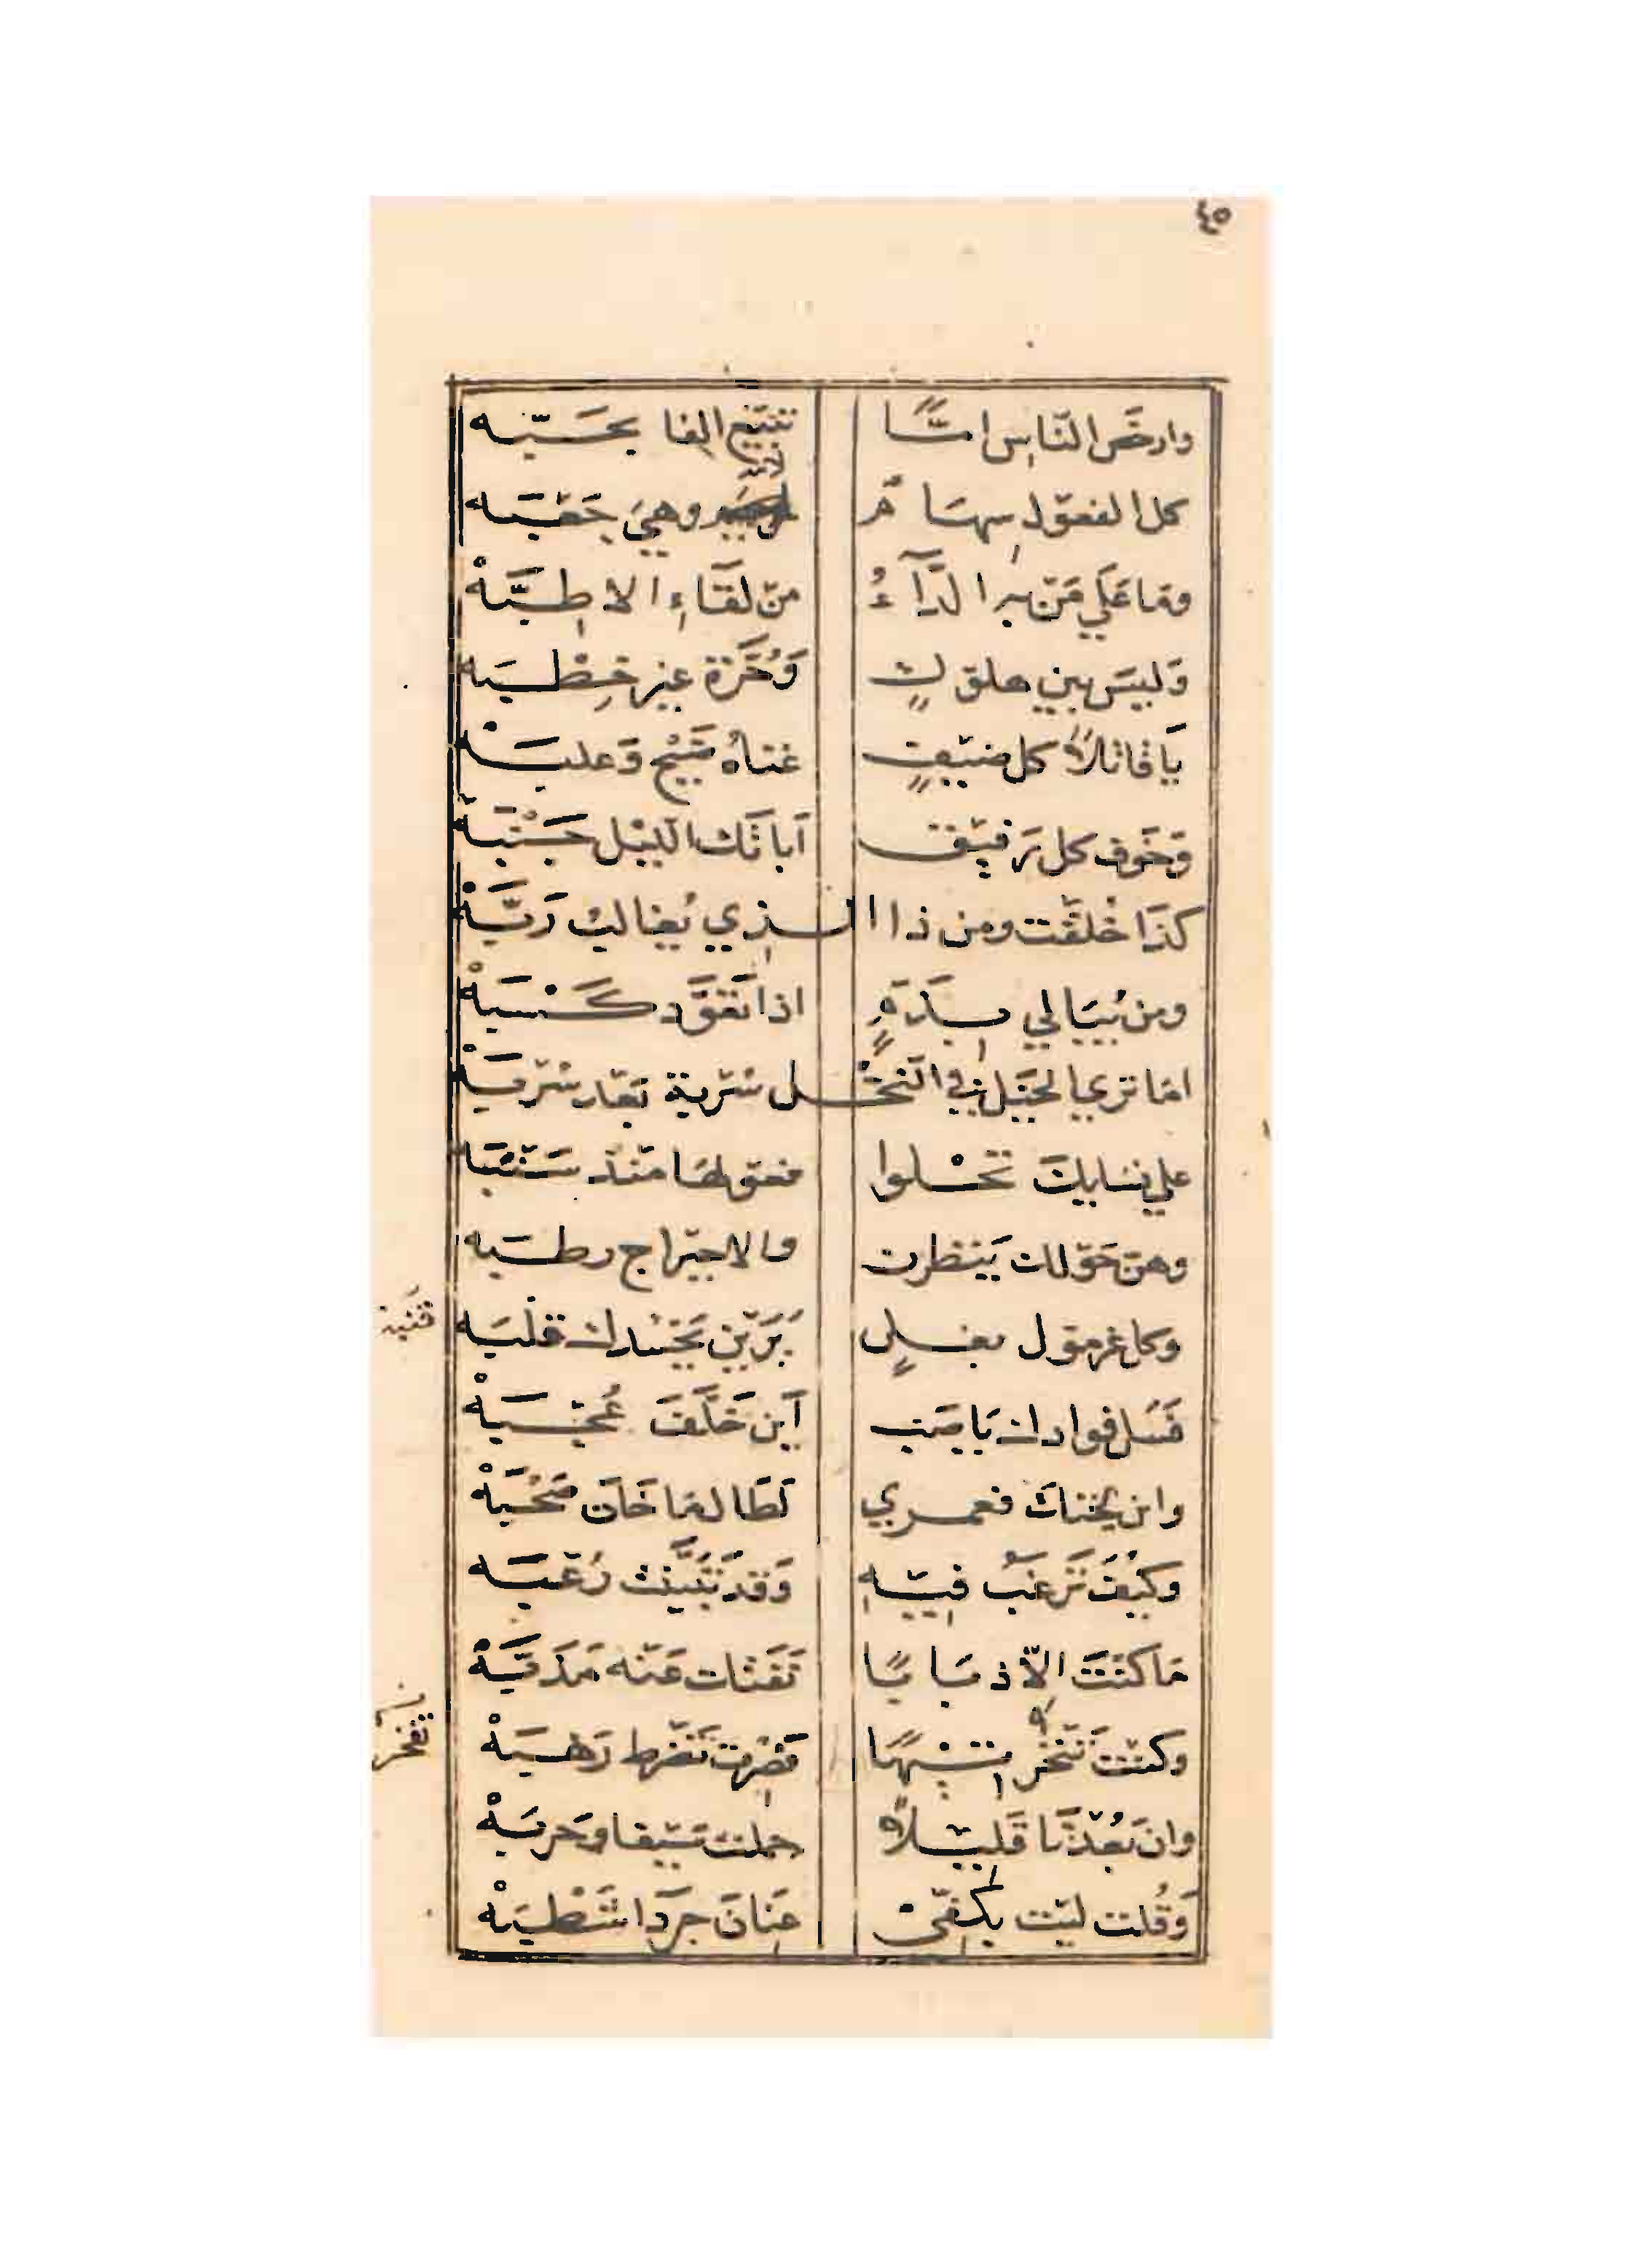 ٤٥
وارخَص النّاس امًّا تبتع الفا بحَبّه
كل الفعول سهَام وهيَ جَعْبَه
ومَا عَلَي مَنْ به الدّآءُ مِنْ لقَآءِ الاطِبَّهْ
وَليسَ بين هلوكٍ وَحُرّة غير خِطْبَه
يَا قاتلاً كل ضَيْفٍ غناهُ ضَيْح وَعلبَهْ
وَخَوف كل رَفيْق اَباتَك الليْل جَنْبَهْ
كذَا خُلقْت ومن ذا الذي يُغالب رَبَّهْ
ومن يُبَالي بذَمٍّ اذا تَعَوَّد كَسْبَهْ
امَا تري الخَيْل في النَخْل سُرْبة بَعْد سُرْبَهْ
علي نسَايك تَجْلوا فعولهَا مُنْذ سَنْبَه
وهنّ حَوْلك يَنْظرن والاحَيْراح رطبَه
وكل غرمول بغلٍ يَرَيْن يَحْسدن قلْبَه
قنبه
فَسَل فوادك يَا ضَب اَين خَلَّفَ عُجْبَهْ
وان يخنك فعمري لطَالمَا خَان صَحْبَهْ
وكيْفَ تَرغبُ فيْهِ وَقد تَبَيَّنْت رُعْبَه
مَا كنْتَ الاّ ذبَابًا نَفَتْك عَنْه مَذَبَّهْ
وكنْتَ تَفخر تيْهًا فصرْت تَضْرط رَهْبَهْ
تفخر
وان بَعُدْنَا قَليْلاً حملت سَيْفا وحَربَهْ
وَقُلت ليْت بكفيْ عِنَانَ جرَدَا شَطْبَهْ